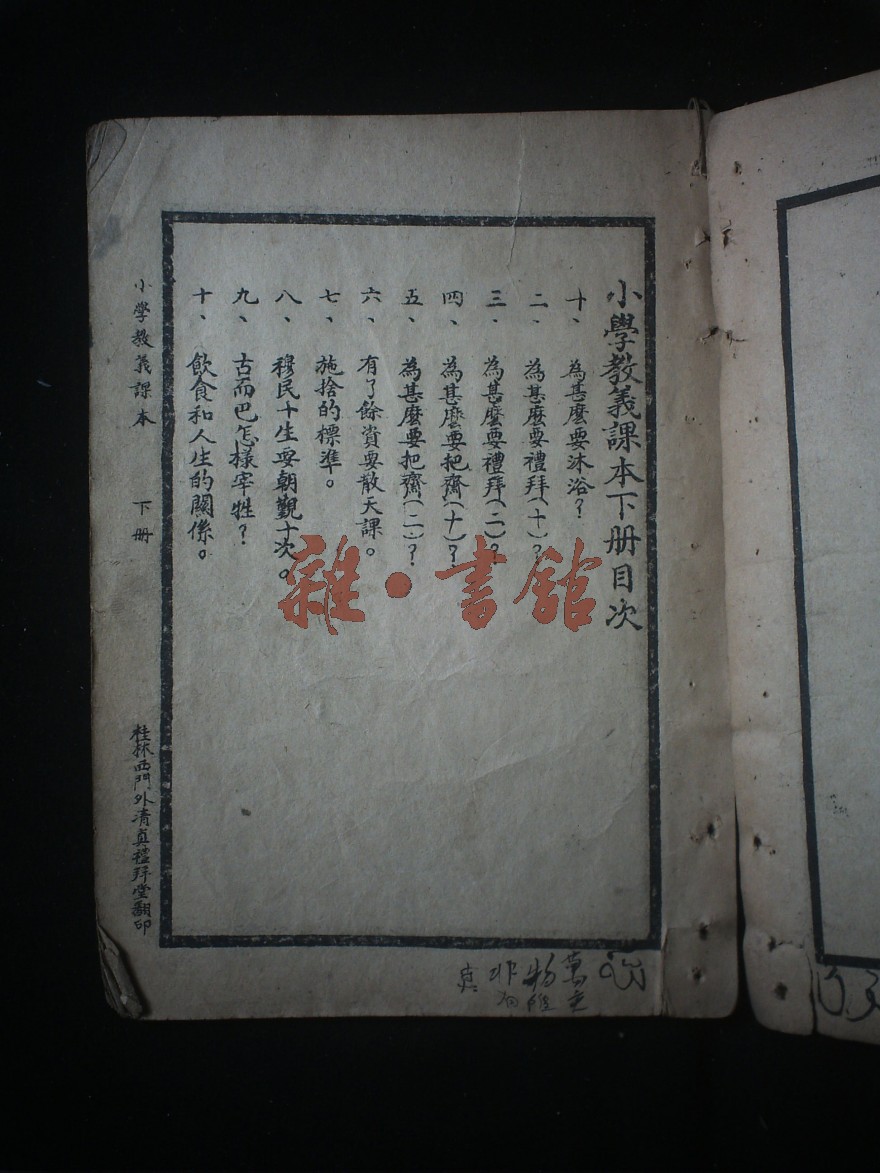 小學教義課本下册目次
十、為甚麼要沐浴？
二、為甚麼要禮拜（十）？
三、為甚麼要禮拜（二）？
四、為甚麼要把齋（十）？
五、為甚麼要把齋（二）？
六、有了餘資要散天課。
七、施捨的標準。
八、穆民十生要朝覲十次。
九、古而巴怎樣宰牲？
十、飲食和人生的關係。
小學教義課本 下册
桂林西門外清真禮拜堂翻印
雜·書館
萬物非
真